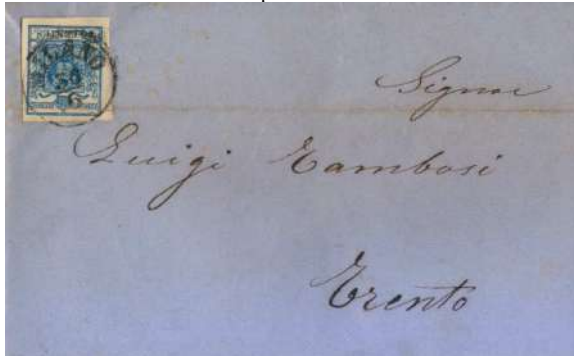 MILANO
30
6
Signor
Luigi Tambosi
Trento